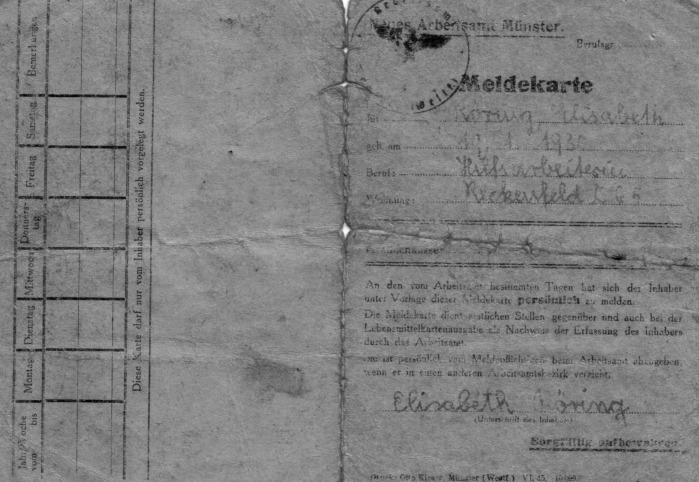 Bemerkungen
Samstag
Freitag
Donners-
tag
Mittwoch
Dienstag
Montag
Jahr Woche
vom bis
Diese Karte darf nur vom Inhaber persönlich vorgelegt werden.
Arbeitsamt Münster.
Berufsgr.
Meldekarte
für Köring, Elisabeth
geb. am 17. 1. 193
Beruf: Hilfsarbeiterin
Wohnung:
An den vom Arbeitsamt bestimmten Tagen hat sich der Inhaber
unter Vorlage dieser Meldekarte persönlich zu melden.
Die Meldekarte dient amtlichen Stellen gegenüber und auch bei der
Lebensmittelkartenausgabe als Nachweis der Erfassung des Inhabers
durch das Arbeitsamt.
ist persönlich vom Meldepflichtigen beim Arbeitsamt abzugeben,
wenn er in einen anderen Arbeitsamtsbezirk verzieht.
Elisabeth Köring
(Unterschrift des Inhabers)
Sorgfältig aufbewahren.
Druck: Otto Münster (Westf.) VI. 45.